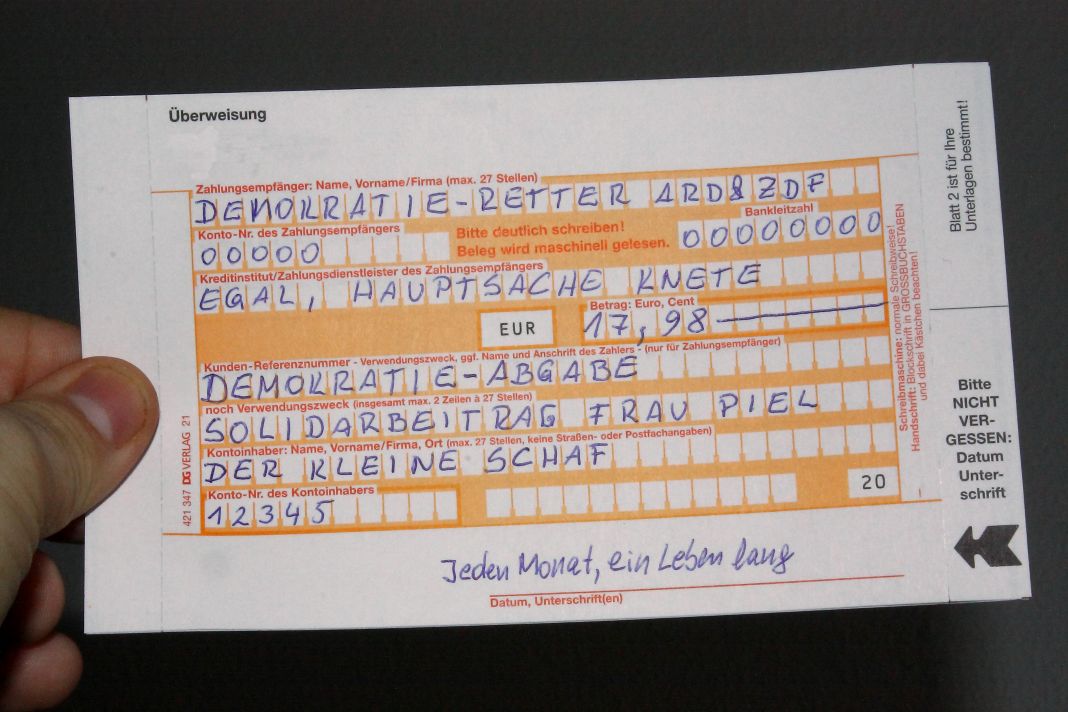 Überweisung
Zahlungsempfänger: Name, Vorname/Firma (max. 27 Stellen)
DEMOKRATIE-RETTER ARD&ZDF
Konto-Nr. des Zahlungsempfängers
00000
Bitte deutlich schreiben!
Beleg wird maschinell gelesen.
Bankleitzahl
00000000
Kreditinstitut/Zahlungsdienstleister des Zahlungsempfängers
EGAL, HAUPTSACHE KNETE
EUR
Betrag: Euro, Cent
17,98
Kunden-Referenznummer - Verwendungszweck, ggf. Name und Anschrift des Zahlers - (nur für Zahlungsempfänger)
DEMOKRATIE-ABGABE
noch Verwendungszweck (insgesamt max. 2 Zeilen à 27 Stellen)
SOLIDARBEITRAG FRAU PIEL
Kontoinhaber: Name, Vorname/Firma, Ort (max. 27 Stellen, keine Straßen- oder Postfachangaben)
DER KLEINE SCHAF
Konto-Nr. des Kontoinhabers
12345
20
Jeden Monat, ein Leben lang
Datum, Unterschrift(en)
421 347 DG VERLAG 21
Schreibmaschine: normale Schreibweise!
Handschrift: Blockschrift in GROSSBUCHSTABEN
und dabei Kästchen beachten!
Blatt 2 ist für Ihre
Unterlagen bestimmt!
Bitte
NICHT
VER-
GESSEN:
Datum
Unter-
schrift